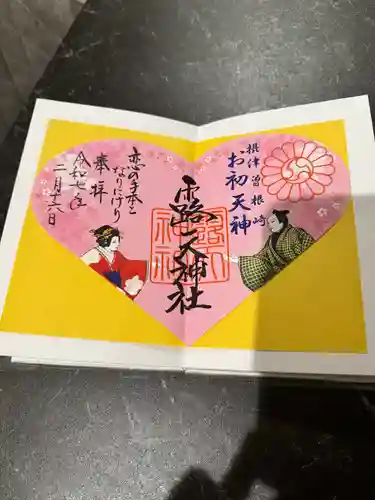 摂津 曽根崎
お初天神
露天神社
恋の手本と
なりにけり
奉拝
令和七年
二月十六日